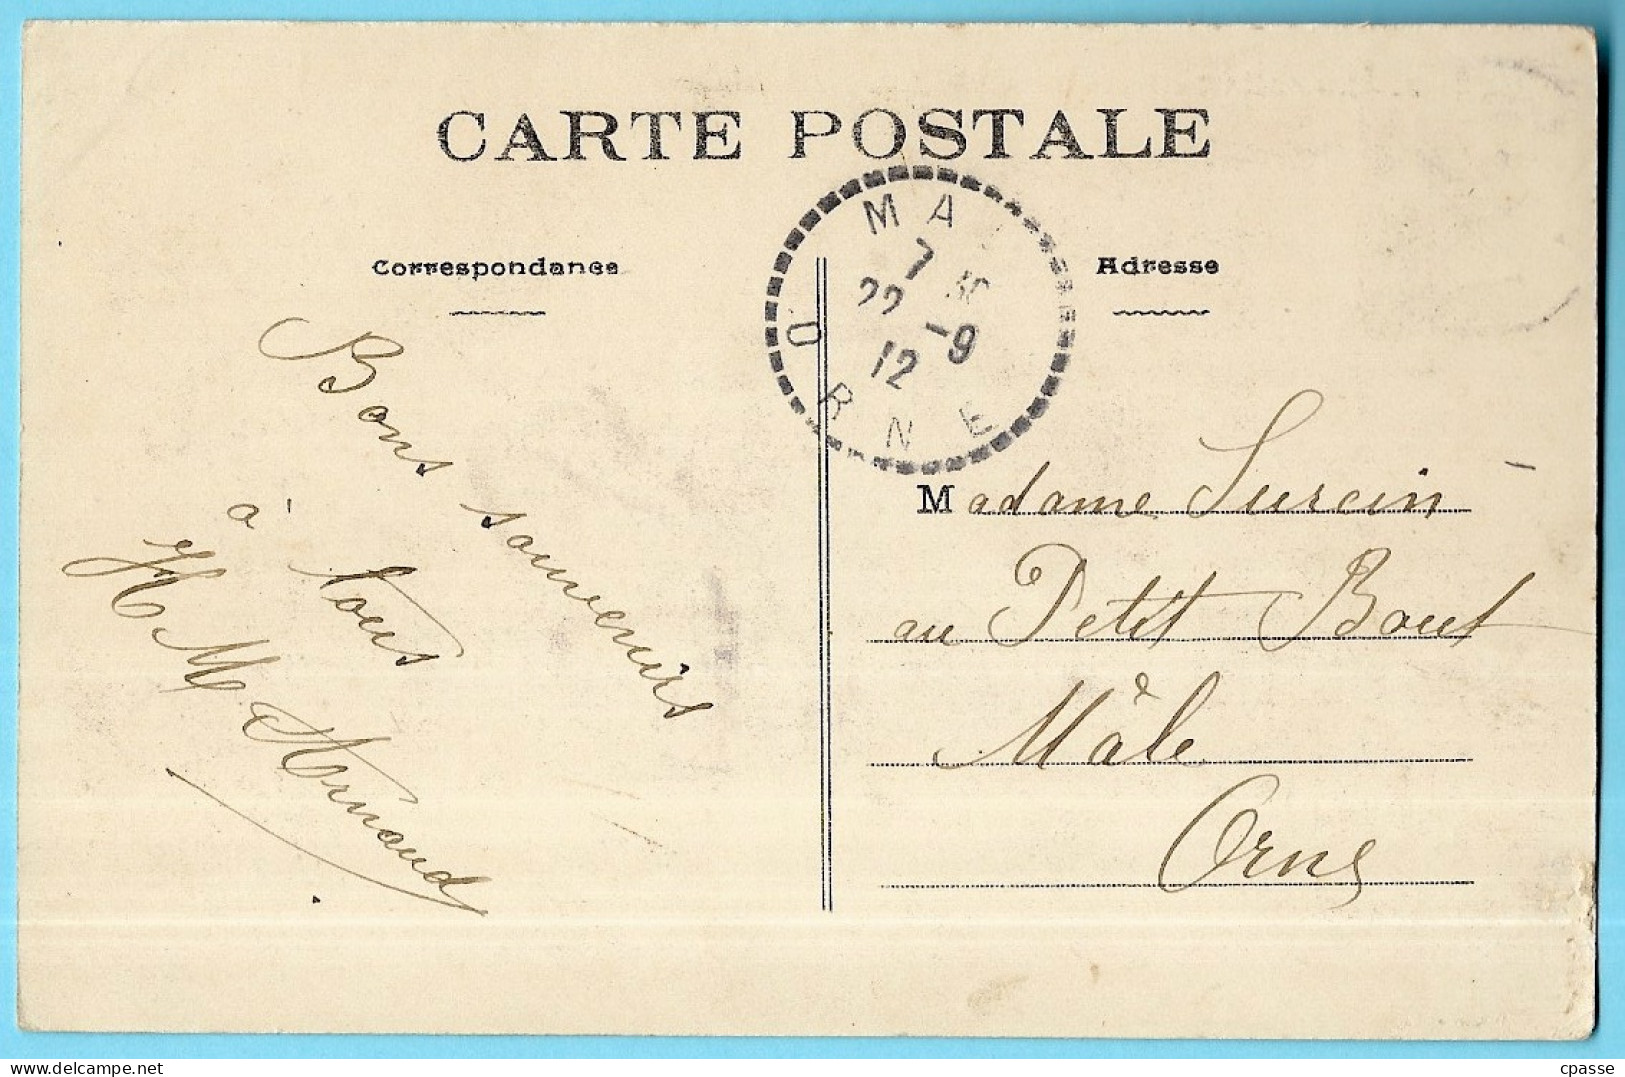 CARTE POSTALE
Correspondance
Adresse
MA
7
22 -9
12
ORNE
Bons souvenirs
à tous
H M Arnaud
Madame Surcin
au Petit Bout
Mâle
Orne
delcampe.net
cpasse